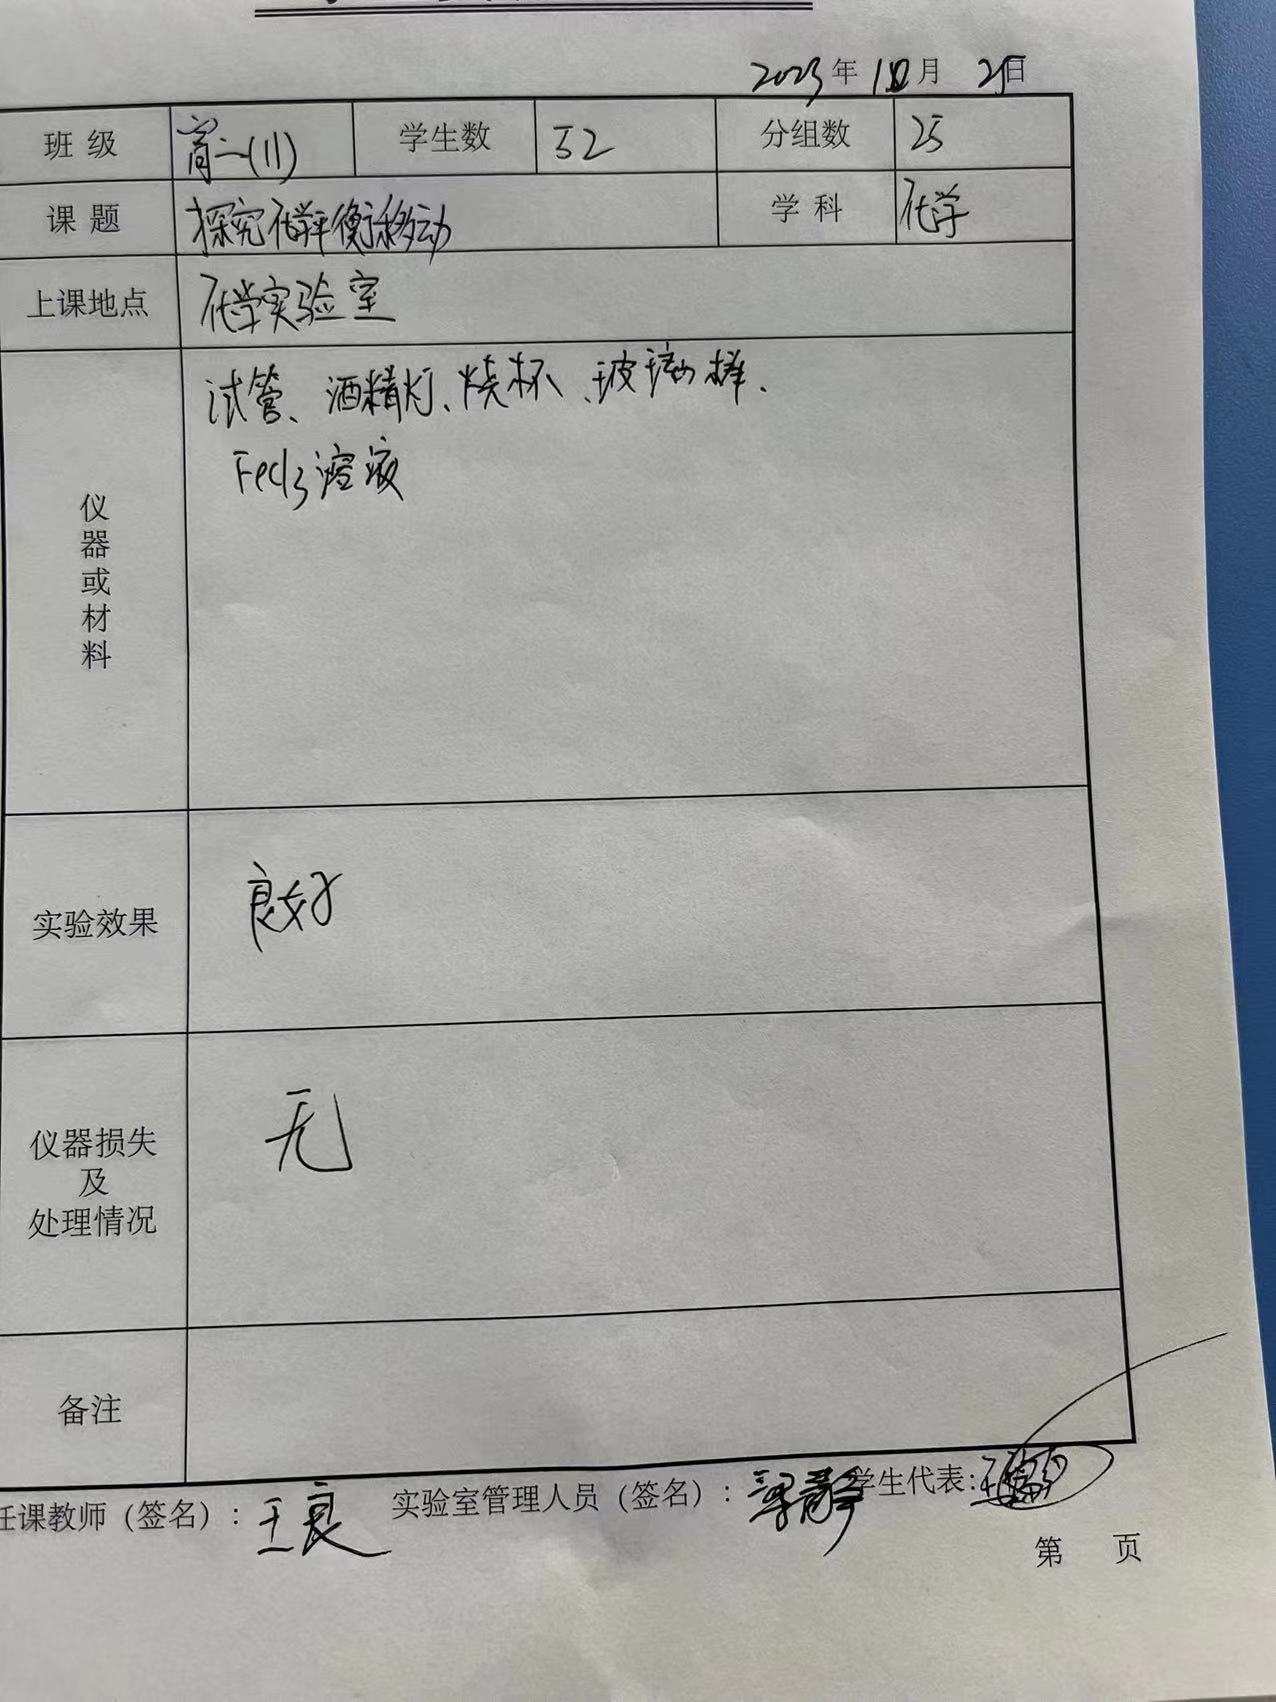 2023年 月 25日
班级 高二(11) 学生数 52 分组数 25
课题 探究化学平衡移动 学科 化学
上课地点 化学实验室
仪器或材料 试管、酒精灯、烧杯、玻璃棒、
FeCl3溶液
实验效果 良好
仪器损失
及
处理情况 无
备注
任课教师（签名）：王良 实验室管理人员（签名）： 学生代表：
第 页